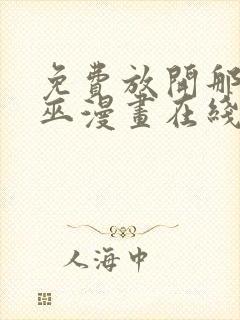 免費放開那
巫漫畫在綫
人海中